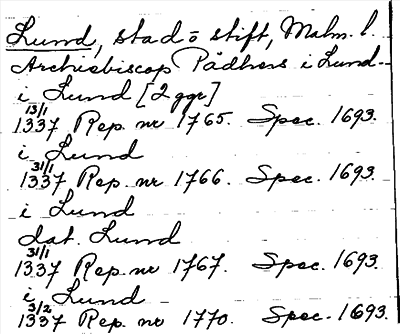 Lund, stad o stift, Malm. l.
Archiebiscop Pädhers i Lund
i Lund [2 ggr]
13/1 1337 Rep. nr 1765. Spec. 1693.
i Lund
31/1 1337 Rep. nr 1766. Spec. 1693.
i Lund
dat. Lund
31/1 1337 Rep. nr 1767. Spec. 1693.
i Lund
3/2 1337 Rep. nr 1770. Spec. 1693.